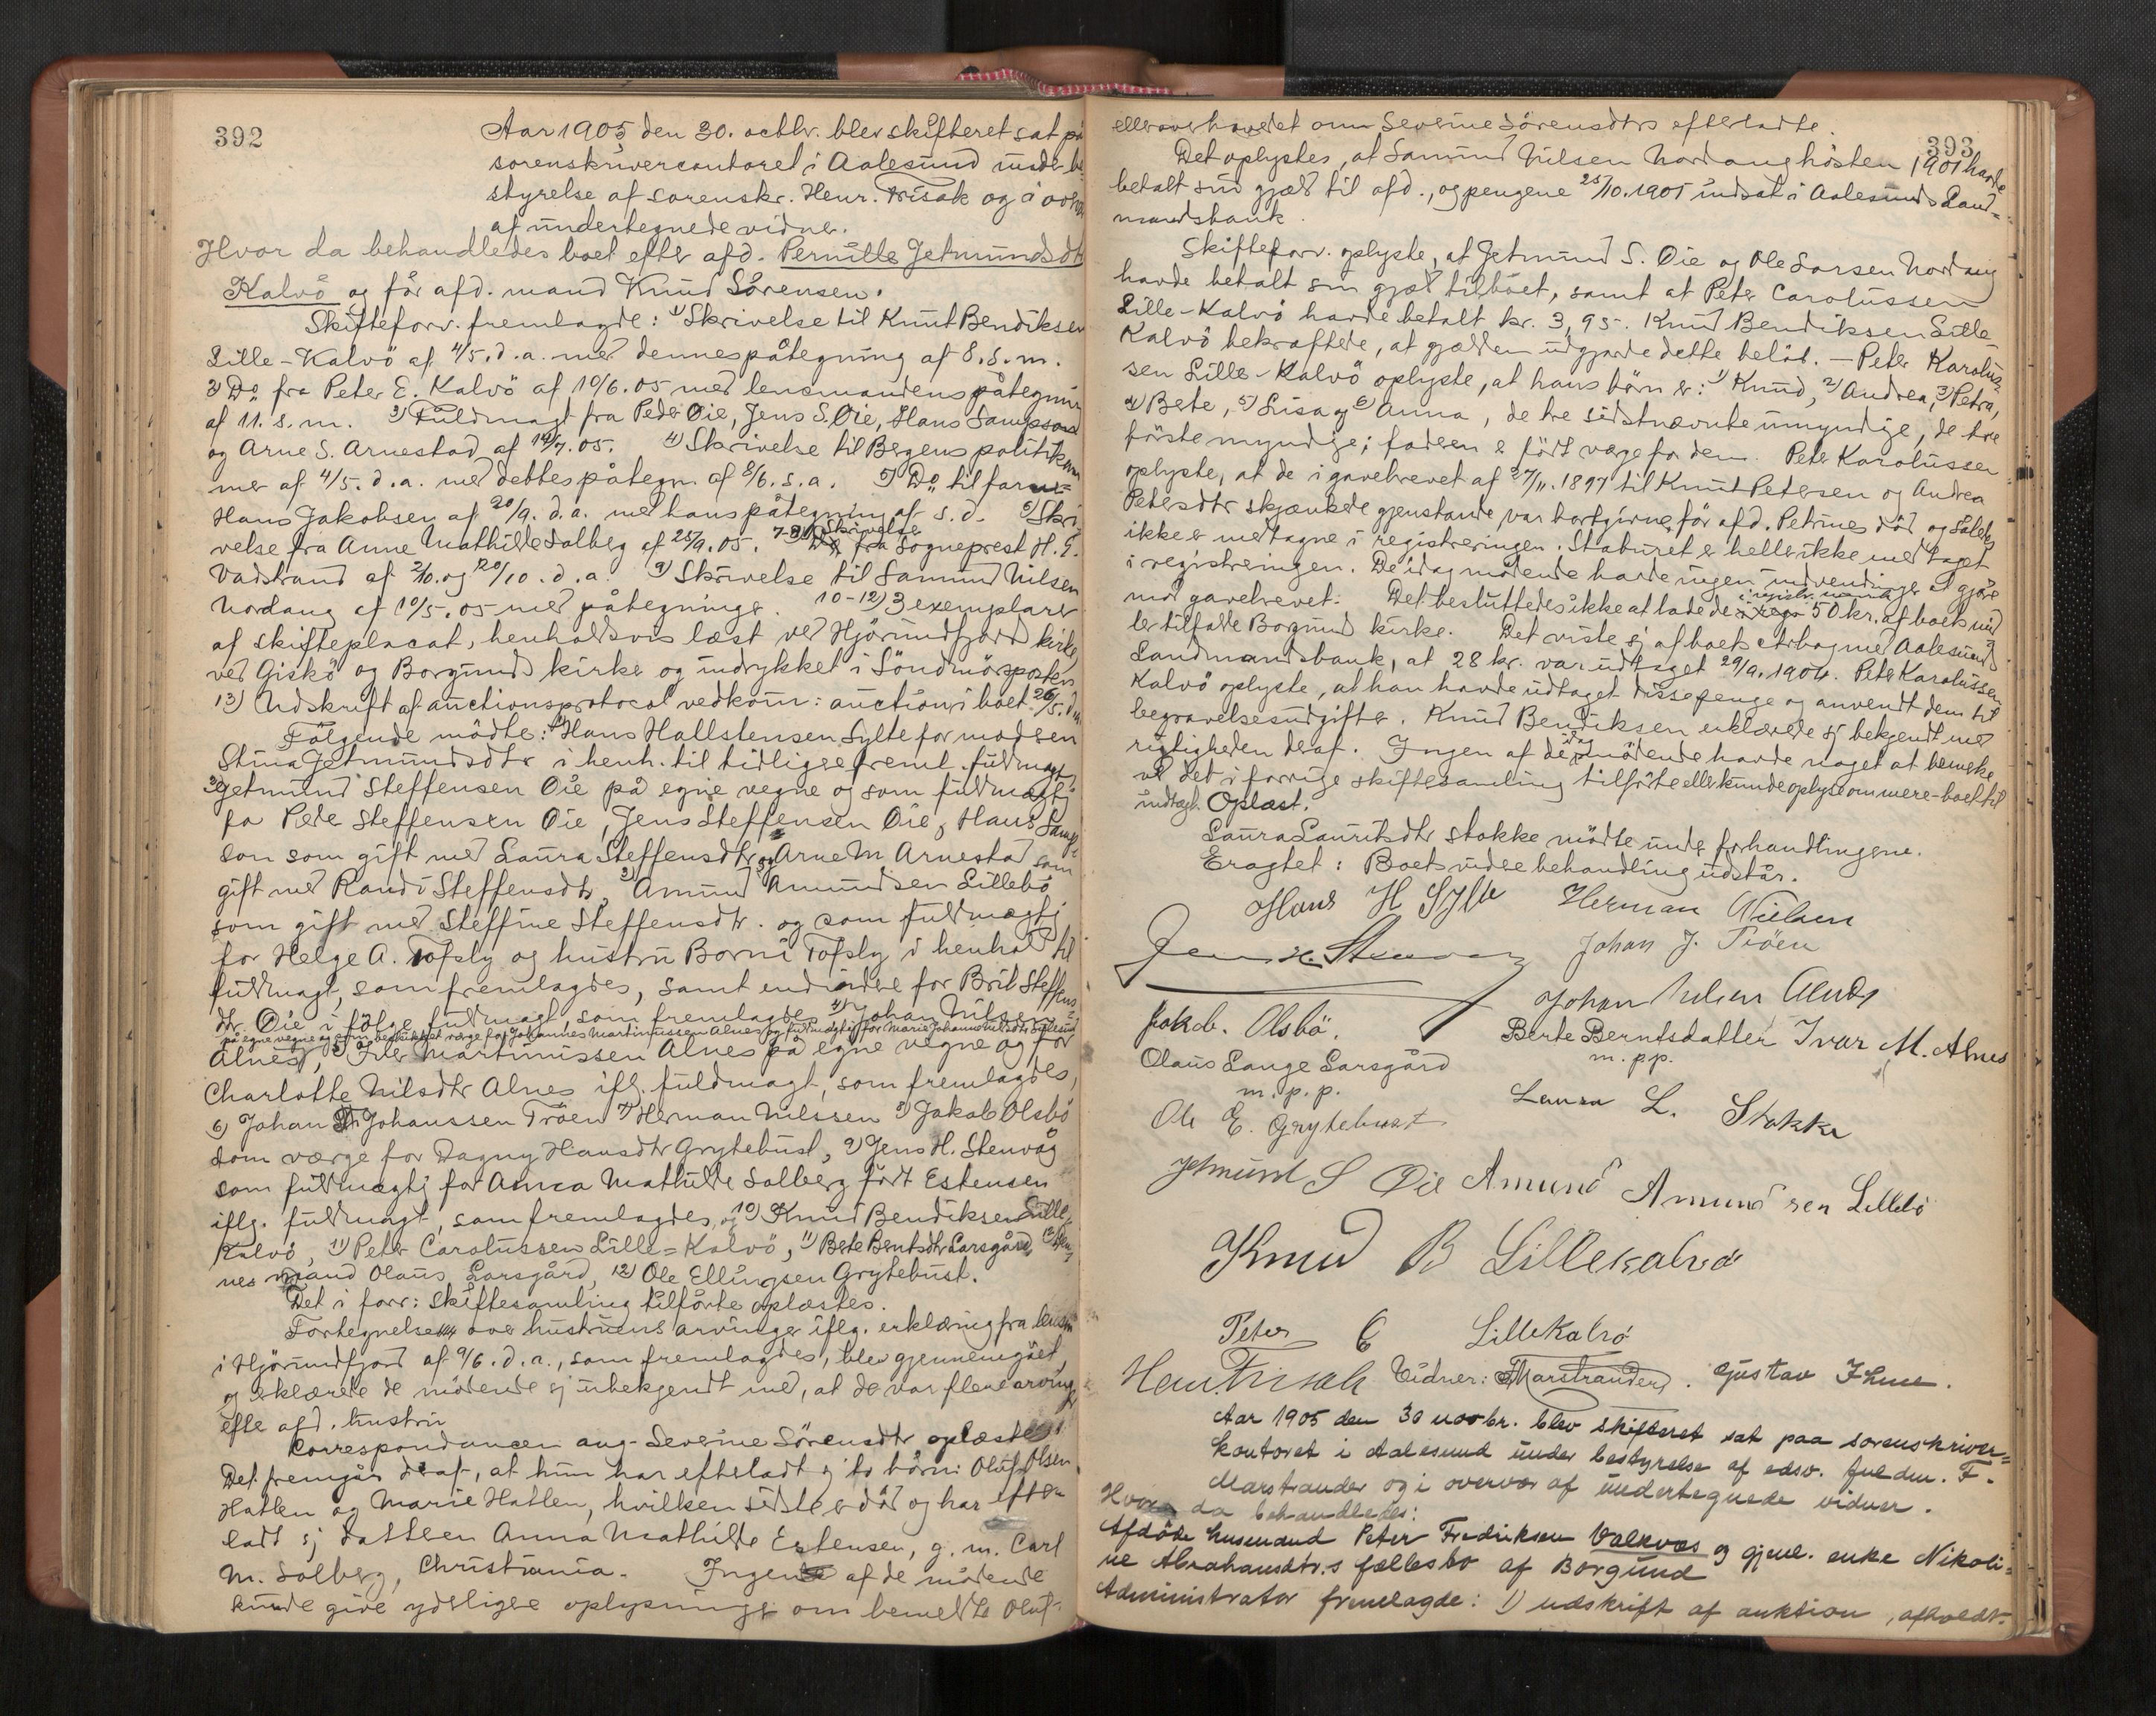 392
Aar 1905 den 30. octbr. blev skifteret sat på
sorenskrivercontoret i Aalesund under be-
styrelse af sorenskr. Henr. Frisak og i overvær
af undertegnede vidner.
Hvor da behandledes boet efter afd. Pernille Jetmundsdtr
Kalvö og før afd. mand Knud Sörensen.
Skifteforv. fremlagde: 1) Skrivelse til Knut Bendiksen
Lille-Kalvö af 4/5. d. a. med dennes påtegning af 8. s. m.
2) Do fra Peter E. Kalvö af 10/6. 05 med lensmandens påtegning
af 11. s. m. 3) Fuldmagt fra Peder Öie, Jens S. Öie, Hans Sampson
og Arne S. Arnestad af 14/7. 05. 4) Skrivelse til Bergens politikam
mer af 4/5. d. a. med dettes påtegn. af 8/6. s. a. 5) Do til
Hans Jakobsen af 20/9. d. a. med hans påtegning af s. d. 6) Skri
velse fra Anne Mathilde Solberg af 25/9. 05. 7-8) Skrivelse fra Sogneprest H. G.
Vadstrand af 2/10. og 20/10. d. a. 9) Skrivelse til Samund Nilsen
Nordang af 10/5. 05 med påtegninger. 10-12) 3 exemplarer
af skifteplacat, henholdsvis læst ved Hjörundfjord kirke,
ved Giskö og Borgund kirke og indrykket i Söndmörsposten
13) Udskrift af auctionsprotocol vedkom: auction i boet 26/5. d. a.
Følgende mödte: 1) Hans Hallstensen Sylte for modsen
Stina Jetmundsdtr i henh. til tidligere freml. fuldmagt
2) Jetmund Steffensen Öie på egne vegne og som fuldmægtig
for Peder Steffensen Öie, Jens Steffensen Öie, Hans Samp
son som gift med Laura Steffensdtr og Arne M. Arnestad som
gift med Randi Steffensdtr, 3) Amund Amundsen Lillebö
som gift med Steffine Steffensdtr. og som fuldmægtig
for Helge A. Tofsly og hustru Borni Tofsly i henhold til
fuldmagt, som fremlagdes, samt endvidere for Brit Steffens
dtr. Öie i følge fuldmagt som fremlagdes 4) Johan Nilsen
på egne vegne og som beskikket værge for Johannes Martinussen Alnes og fuldmægtig for Marie Johanne Nilsdtr
Alnes, 5) Iver Martinussen Alnes på egne vegne og for
Charlotte Nilsdtr Alnes iflg. fuldmagt, som fremlagdes,
6) Johan Johanssen Tröen 7) Herman Nilssen 8) Jakob Olsbö
som værge for Dagny Hansdtr Grytebust, 9) Jens H. Stenvåg
som fuldmægtig for Anna Mathilde Solberg född Estensen
iflg. fuldmagt, som fremlagdes, og 10) Knud Bendiksen Lille
Kalvö, 11) Peter Carolussen Lille-Kalvö, 11) Bete Bentsdtr Larsgård, den
nes mand Olaus Larsgård, 12) Ole Ellingsen Grytebust.
Det i forr: skiftesamling tilförte oplæstes.
Fortegnelse over hustruens arvinger iflg. erklæring fra lensm.
i Hjörundfjord af 9/6. d. a., som fremlagdes, blev gjennemgået,
og erklærede de mödende sig ubekjendt med, at der var flere arvinger
efter afd. hustru
Correspondancen ang. Severine Sörensdtr oplæstes.
Det fremgår deraf, at hun har efterladt sig to børn: Oluf Olsen
Hatlen og Marie Hatlen, hvilken sidste er död og har efter-
ladt sig datteren Anna Mathilde Estensen, g. m. Carl
M. Solberg, Christiania. Ingen af de mödende
kunde give yderligere oplysninger om bemeldte Oluf
393
eller overhovedet om Severine Sörensdtrs efterladte.
Det oplystes, at Samund Nilsen Nordang hösten 1901 havde
betalt sin gjæld til afd., og pengene 25/10. 1901 indsat i Aalesunds Land-
mandsbank.
Skifteforv. oplyste, at Jetmund S. Öie og Ole Larsen Nordang
havde betalt sin gjæld til boet, samt at Peter Carolussen
Lille-Kalvö havde betalt kr. 3,95. Knud Bendiksen Lille-
Kalvö bekræftede, at gjælden udgjorde dette belöb. — Peter Karolus-
sen Lille-Kalvö oplyste, at hans börn er: 1) Knud, 2) Andrea, 3) Petra,
4) Bete, 5) Lisa og 6) Anna, de tre sidstnævnte umyndige, de tre
første myndige; faderen er född værge for dem. Peter Karolussen
oplyste, at de i gavebrevet af 27/11. 1897 til Knut Petersen og Andrea
Petersdtr skjænkede gjenstande var bortgivne för afd. Petrines död og således
ikke er medtagne i registreringen. Staburet er heller ikke medtaget
i registreringen. De idag mödende havde ingen indvendinger at gjöre
mod gavebrevet. Det besluttedes ikke at lade de 50 kr. af boets mid
ler tilfalde Borgund kirke. Det viste sig af boets cbog med Aalesunds
Landmandsbank, at 28 kr. var udtaget 29/9. 1904. Peter Karolussen
Kalvö oplyste, at han havde udtaget disse penge og anvendt dem til
begravelsesudgifter. Knud Bendiksen erklærede sig bekjendt med
rigtigheden deraf. Ingen af de idag mödende havde noget at bemerke
ved det i forrige skiftesamling tilförte eller kunde oplyse om mere boet til
indtægt. Oplæst.
Laura Lauritsdtr Stokke mödte under forhandlingene.
Eragtet: Boets videre behandling udstår.
Hans H Sylte Herman Nielsen
Jens H. Stenvåg Johan J. Tröen
Johan Nilsen Alnes
Jakob. Olsbö. Berte Berntsdatter Ivar M. Alnes
m. p.p.
Olaus Lange Larsgård
m. p. p.
Laura L. Stokke
Ole E. Grytebust
Jetmund S Öie Amund Amundsen Lillebö
Knud B Lillekalvö
Peter C Lillekalvö
Henr. Frisak Vidner: F Marstrander. Gustav Ihme.
Aar 1905 den 30 novbr. blev skifteret sat paa sorenskriver=
kontoret i Aalesund under bestyrelse af edsv. fuldm. F.
Marstrander og i overvær af undertegnede vidner.
Hvor da behandledes:
Afdöde husmand Peter Fredriksen Valkvæs og gjenl. enke Nikoli=
ne Abrahamsdtr.s fællesbo af Borgund
Administrator fremlagde: 1) udskrift af auktion, afholdt